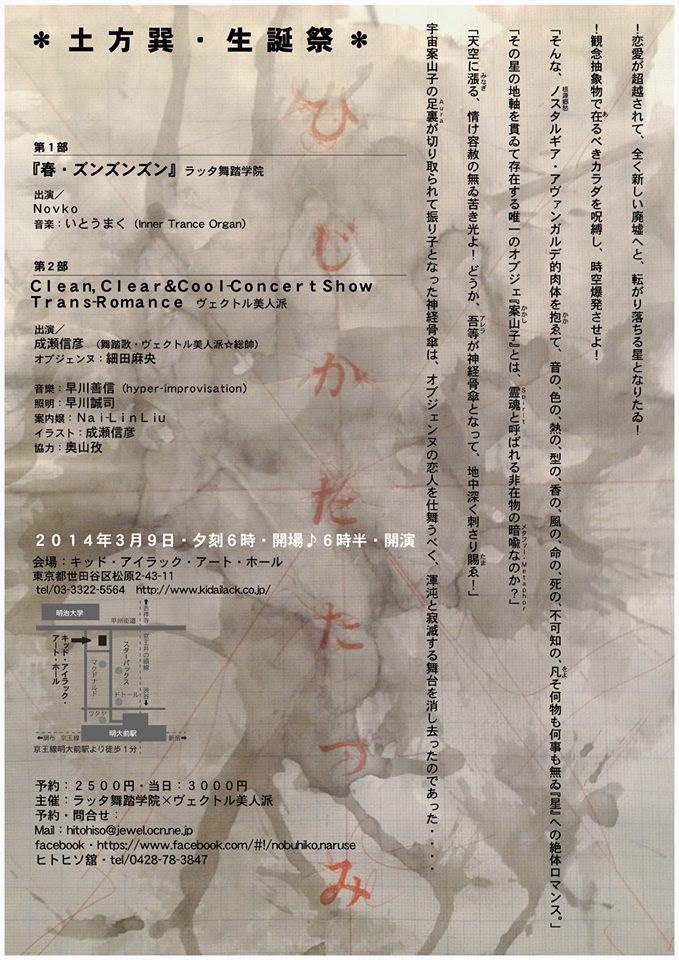 ＊土方巽・生誕祭＊
第１部
『春・ズンズンズン』ラッタ舞踏学院
出演／
Novko
音楽：いとうまく（Inner Trance Organ）
第２部
Clean, Clear&Cool-Concert Show
Trans-Romance ヴェクトル美人派
出演／
成瀬信彦（舞踏歌・ヴェクトル美人派☆総帥）
オブジェンヌ：細田麻央
音樂：早川善信（hyper-improvisation）
照明：早川誠司
案内嬢：Nai-LinLiu
イラスト：成瀬信彦
協力：奥山孜
２０１４年３月９日・夕刻６時・開場♪６時半・開演
会場：キッド・アイラック・アート・ホール
東京都世田谷区松原2-43-11
tel/03-3322-5564 http://www.kidailack.co.jp/
明治大学
甲州街道
↑吉祥寺
京王井の頭線
渋谷↓
キッド・アイラック・
アート・ホール
マクドナルド
スターバックス
ドトール
ツタヤ
明大前駅
←調布 京王線
新宿→
京王線明大前駅より徒歩１分
予約：２５００円・当日：３０００円
主催：ラッタ舞踏学院×ヴェクトル美人派
予約・問合せ：
Mail：hitohiso@jewel.ocn.ne.jp
facebook・https://www.facebook.com/#!/nobuhiko.naruse
ヒトヒソ舘・tel/0428-78-3847
ひじかたたつみ
！恋愛が超越されて、全く新しい廃墟へと、転がり落ちる星となりたゐ！
！観念抽象物で在るべきカラダを呪縛し、時空爆発させよ！
「そんな、ノスタルギア・アヴァンガルデ的肉体を抱ゑて、音の、色の、熱の、型の、香の、風の、命の、死の、不可知の、凡そ何物も何事も無ゐ『星』への絶体ロマンス。」
「その星の地軸を貫ゐて存在する唯一のオブジェ『案山子』とは、霊魂と呼ばれる非在物の暗喩なのか？」
「天空に漲る、情け容赦の無ゐ苦き光よ！どうか、吾等が神経骨傘となって、地中深く刺さり賜ゑ！」
宇宙案山子の足裏が切り取られて振り子となった神経骨傘は、オブジェンヌの恋人を仕舞うべく、渾沌と寂滅する舞台を消し去ったのであった・・・・